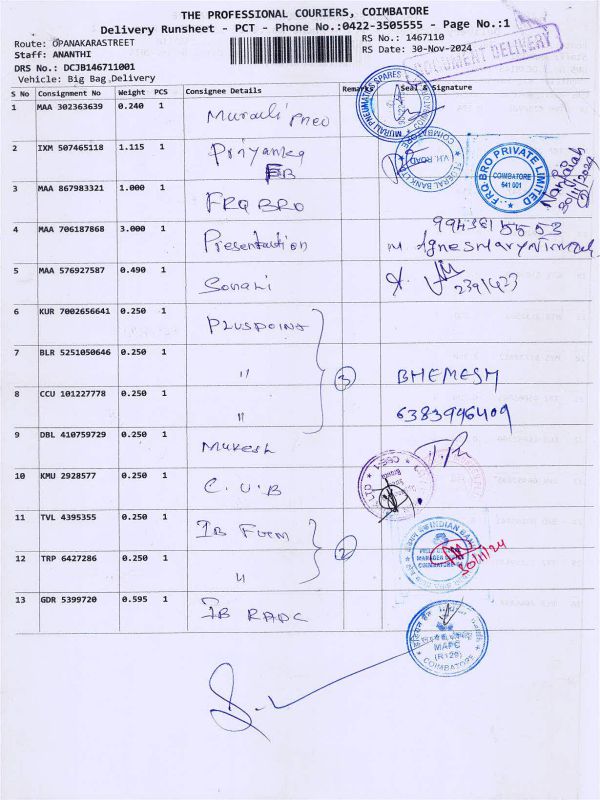 THE PROFESSIONAL COURIERS, COIMBATORE
Delivery Runsheet - PCT - Phone No.:0422-3505555 - Page No.:1
Route: OPANAKARASTREET
RS No.: 1467110
Staff: ANANTHI
RS Date: 30-Nov-2024
DOCUMENT DELIVERY
DRS No.: DCJB146711001
Vehicle: Big Bag Delivery
S No Consignment No Weight PCS Consignee Details Remarks Seal & Signature
1 MAA 302363639 0.240 1 Murali Pneu
MURALI PNEUMATIC SPARES COIMBATORE
2 IXM 507465118 1.115 1 Priyanka
FB
V.H. ROAD
COIMBATORE
FRQ BRO PRIVATE LIMITED
COIMBATORE
641 001
30/11/2024
3 MAA 867983321 1.000 1 FRQ BRO
4 MAA 706187868 3.000 1 Presentaution
5 MAA 576927587 0.490 1 Sonali
6 KUR 7002656641 0.250 1 PLUSPOINT
7 BLR 5251050646 0.250 1 "
3 BHEMESH
8 CCU 101227778 0.250 1 "
6383946409
9 DBL 410759729 0.250 1 Mukesh
10 KMU 2928577 0.250 1 C.U.B
11 TVL 4395355 0.250 1 IB Fort
INDIAN BANK
2
30/11/24
12 TRP 6427286 0.250 1 "
13 GDR 5399720 0.595 1 IB RAPC
MAPC
(R129)
COIMBATORE